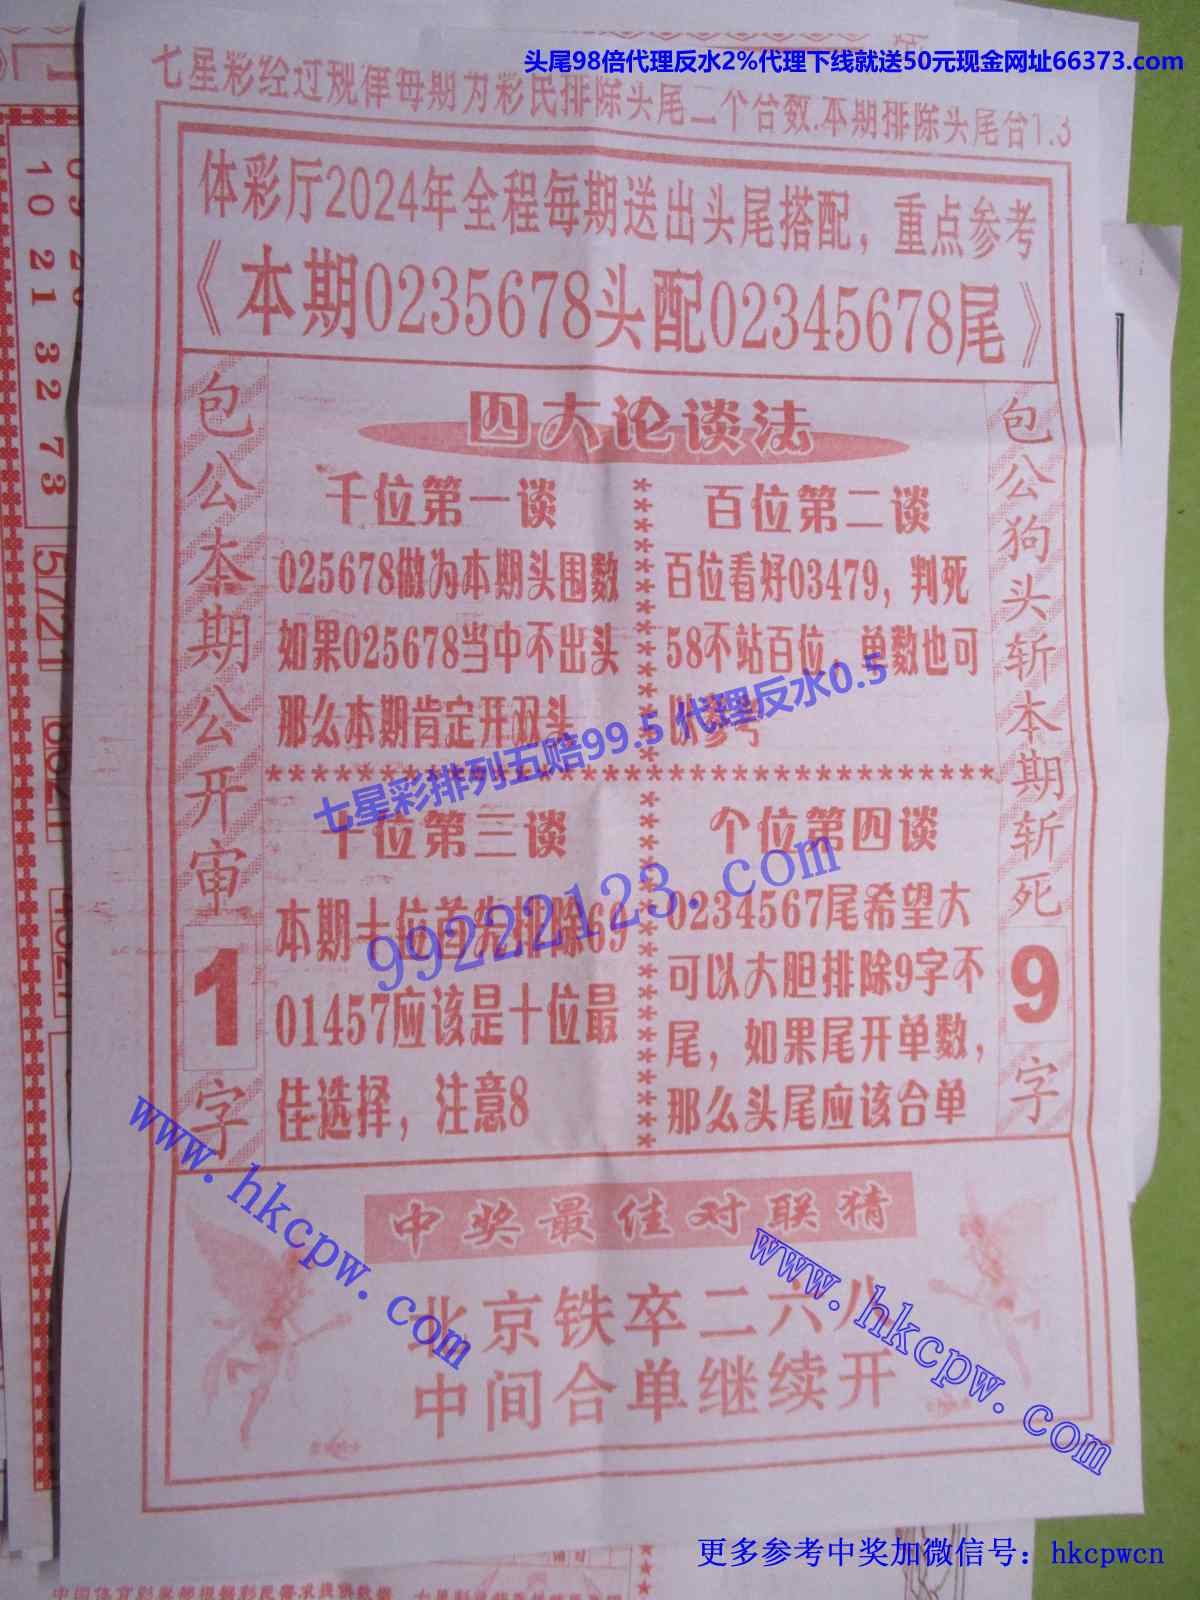 头尾98倍代理反水2%代理下线就送50元现金网址66373.com
七星彩经过规律每期为彩民排除头尾二个合数.本期排除头尾合1.3
体彩厅2024年全程每期送出头尾搭配，重点参考
《本期0235678头配02345678尾》
包公本期公开审1字
四大论谈法
千位第一谈
025678做为本期头围数
如果025678当中不出头
那么本期肯定开双头
百位第二谈
百位看好03479，判死
58不站百位，单数也可
以参考
七星彩排列五赔99.5 代理反水0.5
十位第三谈
本期十位首先排除69
01457应该是十位最
佳选择，注意8
个位第四谈
0234567尾希望大
可以大胆排除9字不
尾，如果尾开单数，
那么头尾应该合单
99222123.com
包公狗头斩本期斩死9字
中奖最佳对联猜
北京铁卒二六八
中间合单继续开
www.hkcpw.com
www.hkcpw.com
更多参考中奖加微信号：hkcpwcn
10 21 32 73
5721